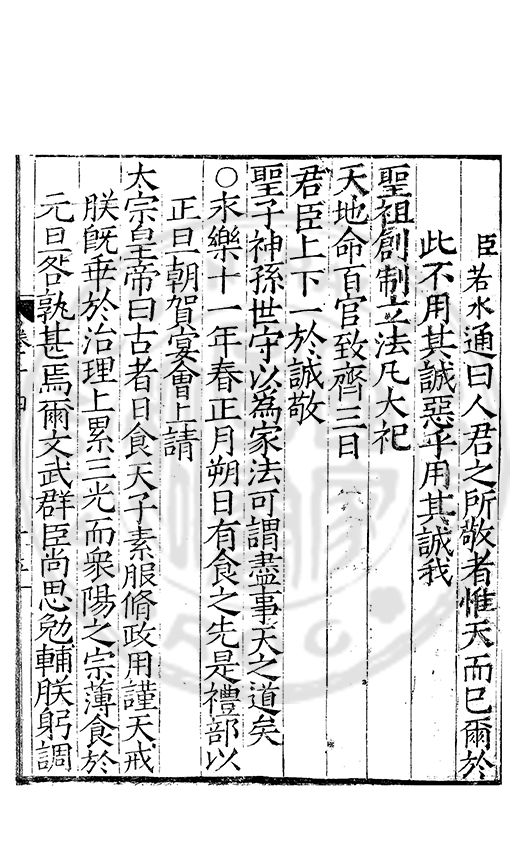 臣若水通曰人君之所敬者惟天而已爾於
此不用其誠惡乎用其誠我
聖祖創制立法凡大祀
天地命百官致齊三日
君臣上下一於誠敬
聖子神孫世守以為家法可謂盡事天之道矣
○永樂十一年春正月朔日有食之先是禮部以
正旦朝賀宴會上請
太宗皇帝曰古者日食天子素服脩政用謹天戒
朕既乖於治理上累三光而衆陽之宗薄食於
元旦咎孰甚焉爾文武群臣尚思勉輔朕躬調